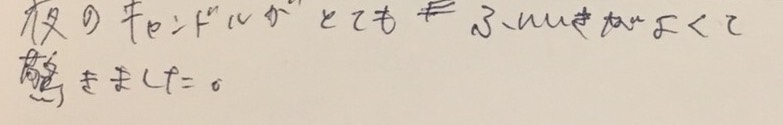 夜のキャンドルがとても ふんいきがよくて
驚きました。